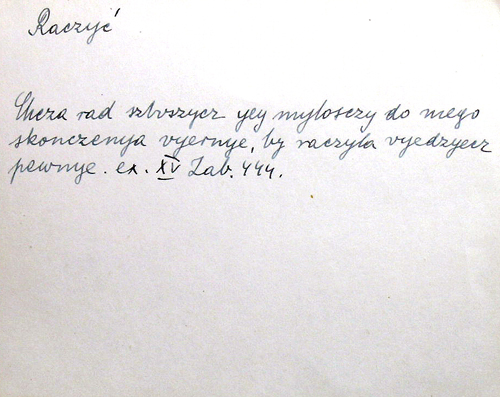 Raczyć
Chcza rad szlvszycz yey mylosczy do mego
skonczenya vyernye, by raczyla vyedzyecz
pewnye. ex. XV Zab. 444.